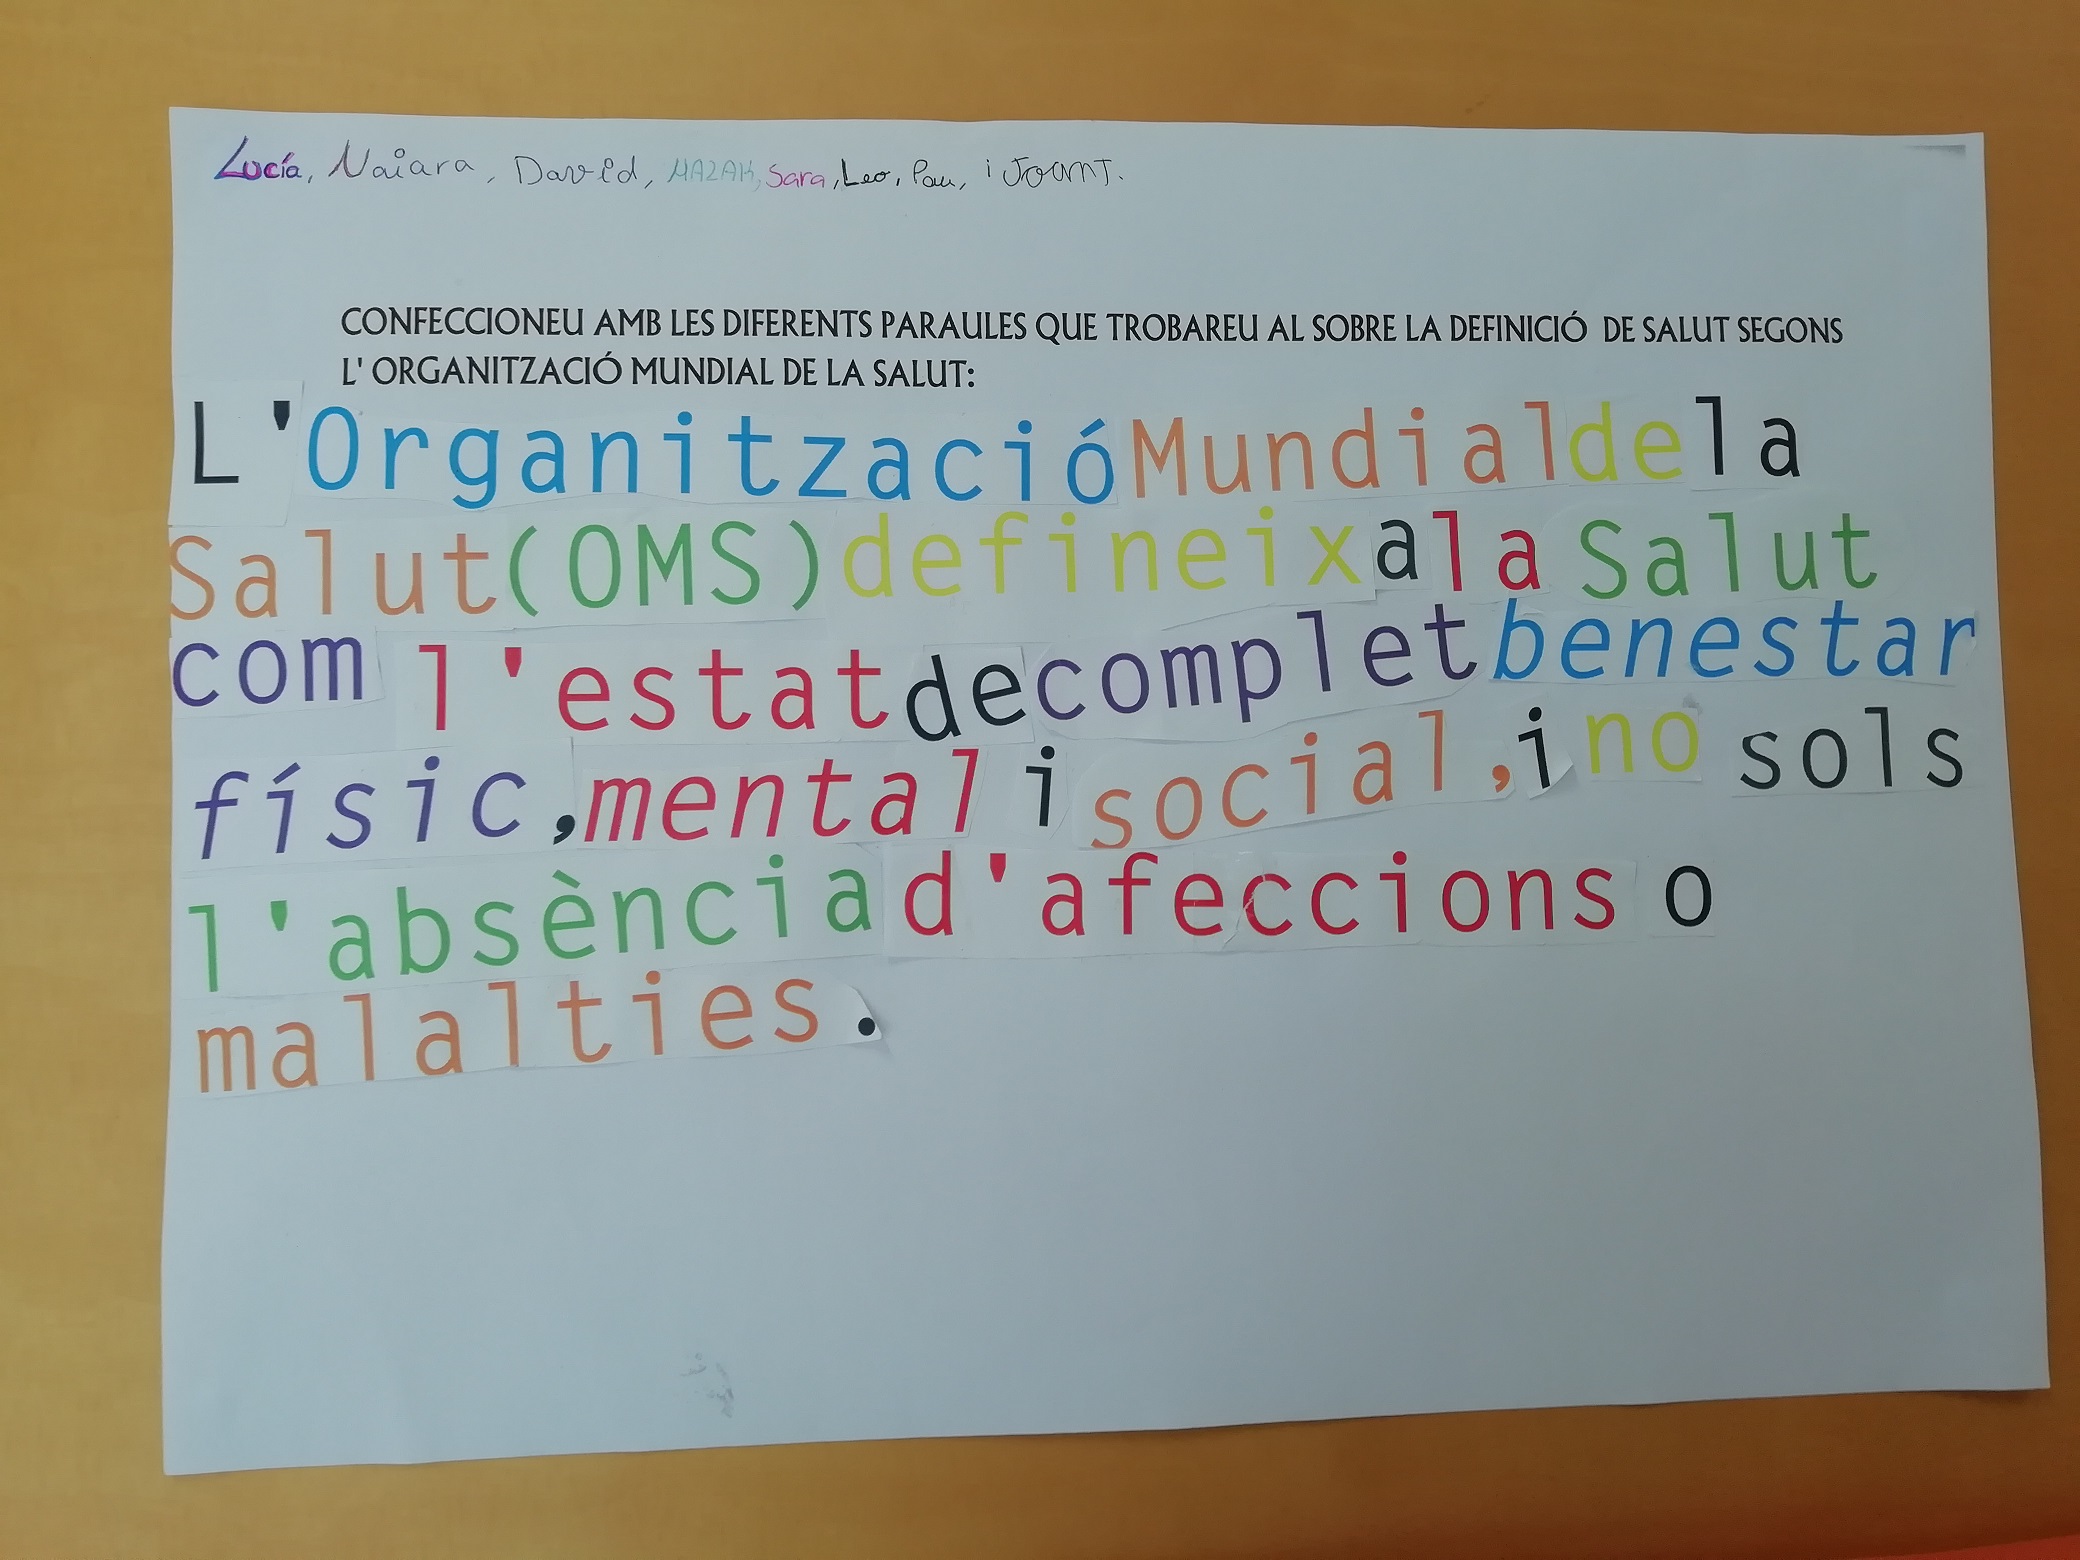 Lucía, Naiara, David, Sara, Leo, Pau, i JoanT.
CONFECCIONEU AMB LES DIFERENTS PARAULES QUE TROBAREU AL SOBRE LA DEFINICIÓ DE SALUT SEGONS
L' ORGANITZACIÓ MUNDIAL DE LA SALUT:
L'Organització Mundial de la
Salut (OMS) defineix a la Salut
com l'estat de complet benestar
físic, mental i social, i no sols
l'absència d'afeccions o
malalties.